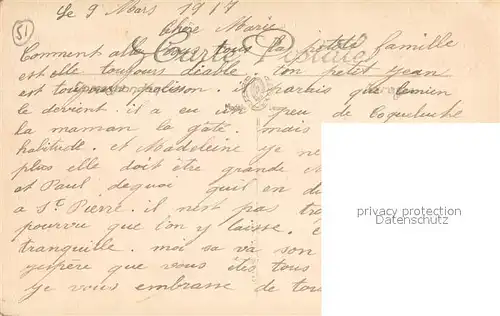 51
Le 9 Mars 1917
Chère Marie
Comment allez vous tous la petite famille
Carte Postale
est elle toujours diable ton petit Jean
est toujours polisson. il parait que le mien
le devient. il a eu un peu de Coqueluche
la maman la gâte. mais
habitude. et Madeleine je ne
plus elle doit être grande
et Paul dequoi quil en di
a St Pierre. il nest pas tro
pourvu que lon y laisse.
tranquille. moi sa va son
jespère que vous êtes tous
je vous embrasse de tou
privacy protection
Datenschutz